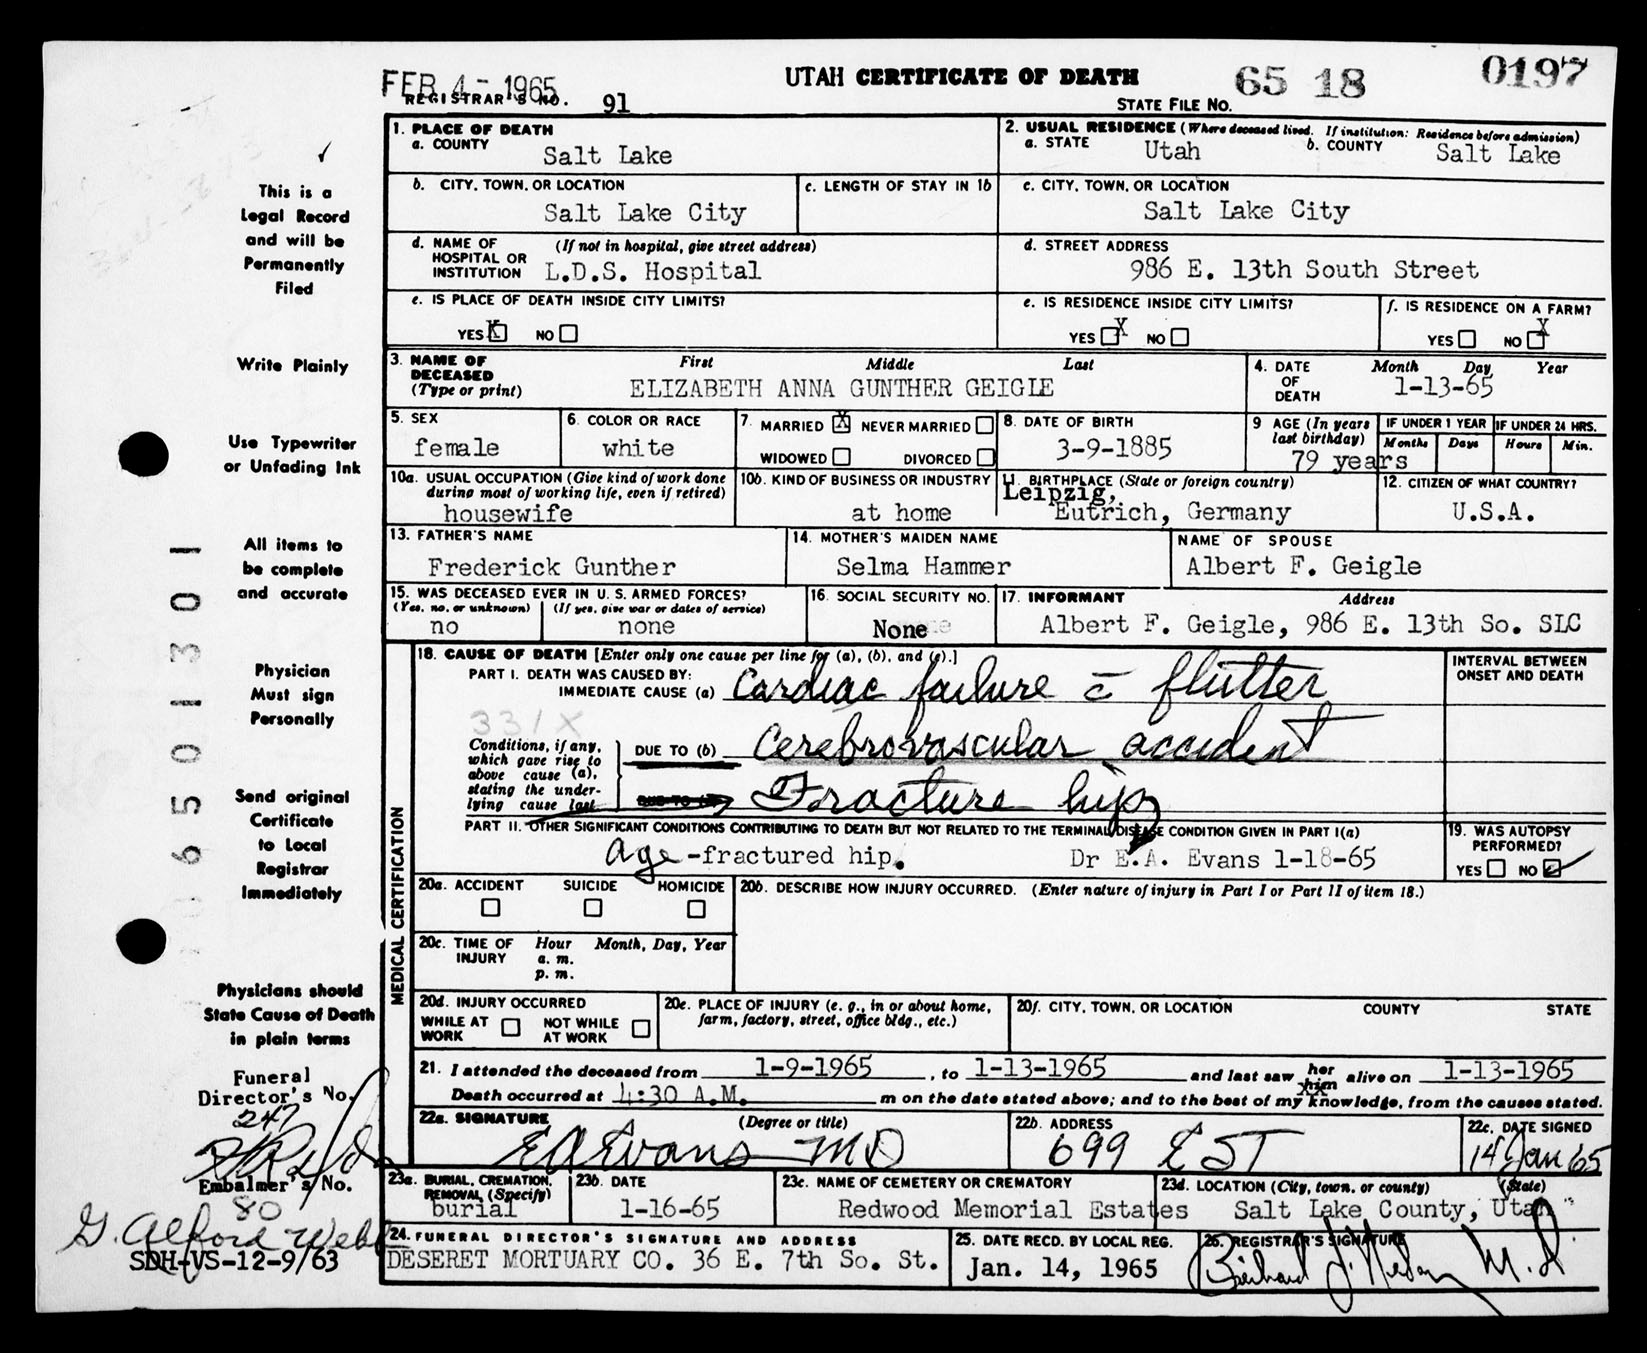 FEB 4 - 1965
UTAH CERTIFICATE OF DEATH
65 18 0197
REGISTRAR'S NO. 91
STATE FILE NO.
1. PLACE OF DEATH
a. COUNTY
Salt Lake
2. USUAL RESIDENCE (Where deceased lived. If institution: Residence before admission)
a. STATE Utah b. COUNTY Salt Lake
b. CITY, TOWN, OR LOCATION
Salt Lake City
c. LENGTH OF STAY IN 1b
c. CITY, TOWN, OR LOCATION
Salt Lake City
d. NAME OF HOSPITAL OR INSTITUTION (If not in hospital, give street address)
L.D.S. Hospital
d. STREET ADDRESS
986 E. 13th South Street
e. IS PLACE OF DEATH INSIDE CITY LIMITS?
YES X NO
e. IS RESIDENCE INSIDE CITY LIMITS?
YES X NO
f. IS RESIDENCE ON A FARM?
YES NO X
3. NAME OF DECEASED (Type or print) First Middle Last
ELIZABETH ANNA GUNTHER GEIGLE
4. DATE OF DEATH Month Day Year
1-13-65
5. SEX
female
6. COLOR OR RACE
white
7. MARRIED X NEVER MARRIED
WIDOWED DIVORCED
8. DATE OF BIRTH
3-9-1885
9 AGE (In years last birthday)
79 years
IF UNDER 1 YEAR
Months Days
IF UNDER 24 HRS.
Hours Min.
10a. USUAL OCCUPATION (Give kind of work done during most of working life, even if retired)
housewife
10b. KIND OF BUSINESS OR INDUSTRY
at home
11. BIRTHPLACE (State or foreign country)
Leipzig,
Eutrich, Germany
12. CITIZEN OF WHAT COUNTRY?
U.S.A.
13. FATHER'S NAME
Frederick Gunther
14. MOTHER'S MAIDEN NAME
Selma Hammer
NAME OF SPOUSE
Albert F. Geigle
15. WAS DECEASED EVER IN U. S. ARMED FORCES?
(Yes, no, or unknown) (If yes, give war or dates of service)
no none
16. SOCIAL SECURITY NO.
None
17. INFORMANT Address
Albert F. Geigle, 986 E. 13th So. SLC
MEDICAL CERTIFICATION
18. CAUSE OF DEATH [Enter only one cause per line for (a), (b), and (c).]
PART I. DEATH WAS CAUSED BY:
IMMEDIATE CAUSE (a) Cardiac failure c̄ flutter
331X
Conditions, if any, which gave rise to above cause (a), stating the underlying cause last
DUE TO (b) Cerebrovascular accident
Fracture hip
INTERVAL BETWEEN ONSET AND DEATH
PART II. OTHER SIGNIFICANT CONDITIONS CONTRIBUTING TO DEATH BUT NOT RELATED TO THE TERMINAL DISEASE CONDITION GIVEN IN PART I(a)
Age -fractured hip. Dr E.A. Evans 1-18-65
19. WAS AUTOPSY PERFORMED?
YES NO
20a. ACCIDENT SUICIDE HOMICIDE
20b. DESCRIBE HOW INJURY OCCURRED. (Enter nature of injury in Part I or Part II of item 18.)
20c. TIME OF INJURY Hour Month, Day, Year
a. m.
p. m.
20d. INJURY OCCURRED
WHILE AT WORK NOT WHILE AT WORK
20e. PLACE OF INJURY (e. g., in or about home, farm, factory, street, office bldg., etc.)
20f. CITY, TOWN, OR LOCATION COUNTY STATE
21. I attended the deceased from 1-9-1965, to 1-13-1965 and last saw her him alive on 1-13-1965
Death occurred at 4:30 A.M. m on the date stated above; and to the best of my knowledge, from the causes stated.
22a. SIGNATURE (Degree or title)
E A Evans MD
22b. ADDRESS
699 E ST
22c. DATE SIGNED
14 Jan 65
23a. BURIAL, CREMATION, REMOVAL (Specify)
burial
23b. DATE
1-16-65
23c. NAME OF CEMETERY OR CREMATORY
Redwood Memorial Estates
23d. LOCATION (City, town, or county) (State)
Salt Lake County, Utah
24. FUNERAL DIRECTOR'S SIGNATURE AND ADDRESS
DESERET MORTUARY CO. 36 E. 7th So. St.
25. DATE RECD. BY LOCAL REG.
Jan. 14, 1965
26. REGISTRAR'S SIGNATURE
M.D.
This is a
Legal Record
and will be
Permanently
Filed
Write Plainly
Use Typewriter
or Unfading Ink
All items to
be complete
and accurate
Physician
Must sign
Personally
Send original
Certificate
to Local
Registrar
Immediately
Physicians should
State Cause of Death
in plain terms
Funeral
Director's No.
247
Embalmer's No.
80
G. Alford Webb
SDH-VS-12-9/63
650 1301